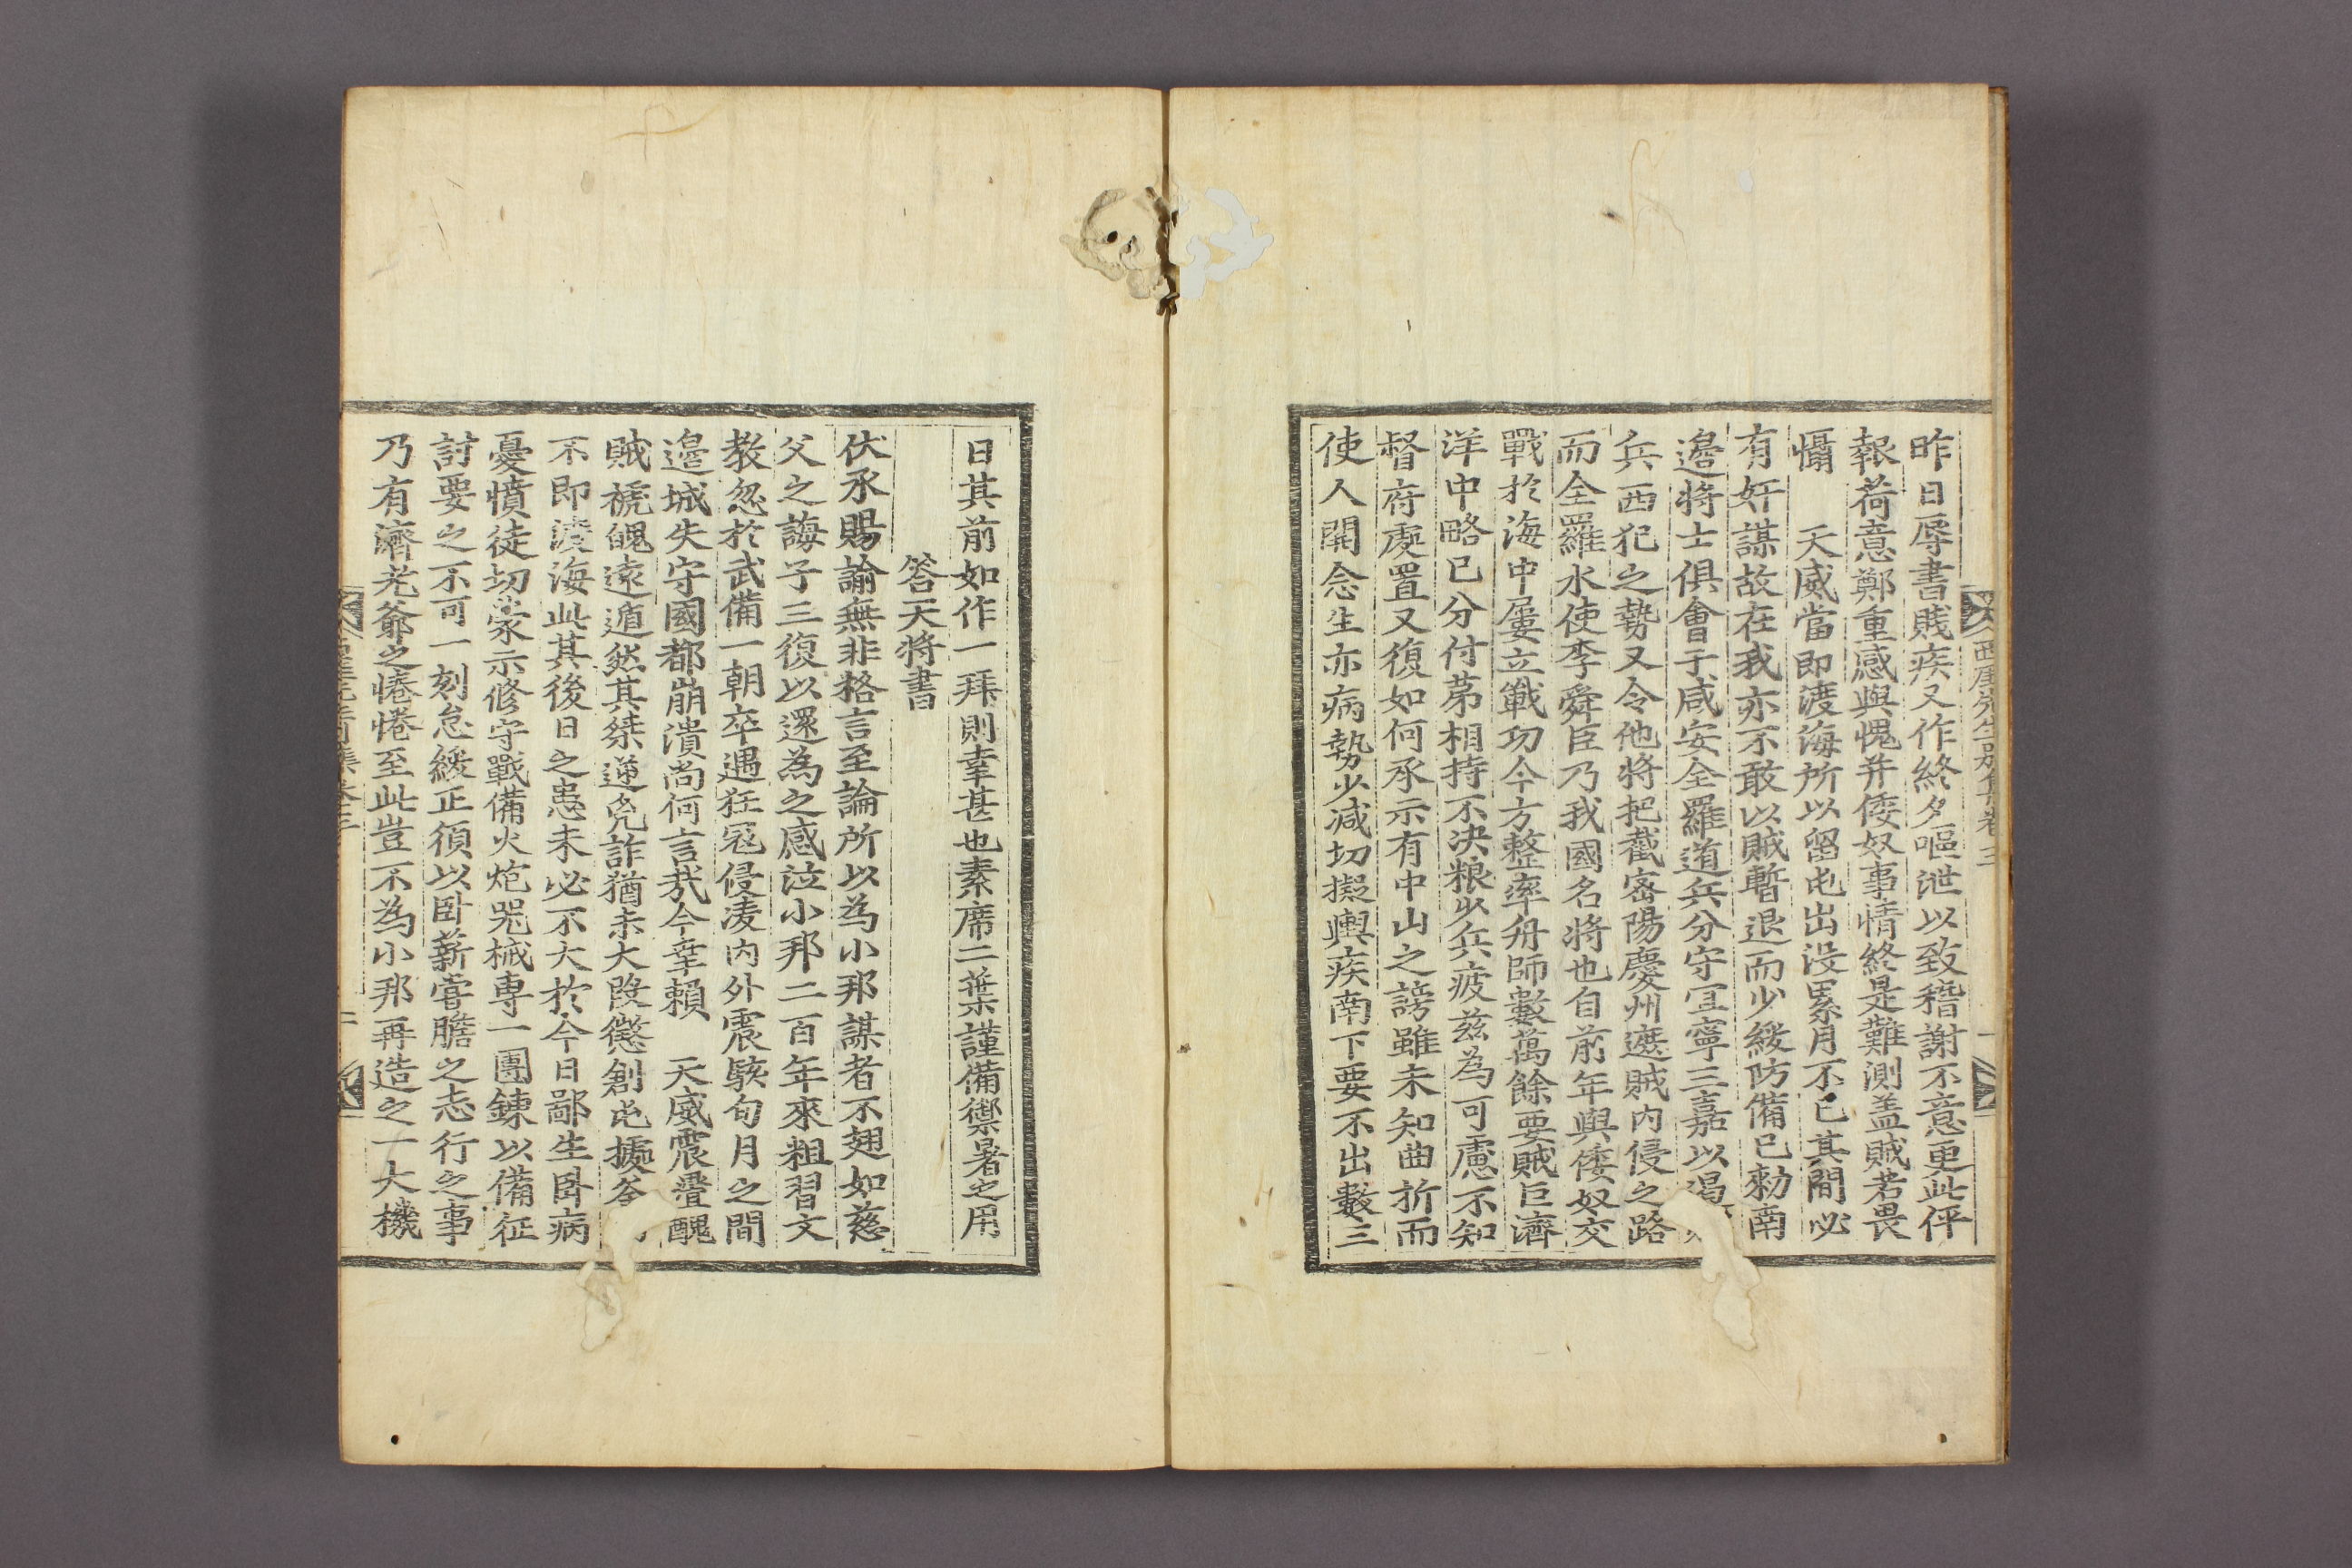 昨日辱書賤疾又作終夕嘔泄以致稽謝不意更此伻
報荷意鄭重感與愧并倭奴事情終是難測盖賊若畏
懾　天威當即渡海所以留屯出沒累月不已其間必
有奸謀故在我亦不敢以賊暫退而少緩防備已勑南
邊將士俱會于咸安全羅道兵分守宜寧三嘉以遏
兵西犯之勢又令他將把截密陽慶州遮賊內侵之路
而全羅水使李舜臣乃我國名將也自前年與倭奴交
戰於海中屢立戰功今方整率舟師數萬餘要賊巨濟
洋中略已分付苐相持不决粮少兵疲玆為可慮不知
督府處置又復如何承示有中山之謗雖未知曲折而
使人開念生亦病勢少减切擬輿疾南下要不出數三
日其前如作一拜則幸甚也素席二葉謹備禦暑之用
答天將書
伏承賜諭無非格言至論所以為小邦謀者不翅如慈
父之誨子三復以還為之感泣小邦二百年來粗習文
教忽於武備一朝卒遇狂寇侵凌內外震駭旬月之間
邉城失守國都崩潰尚何言㢤今幸賴　天威震疊醜
賊褫魄遠遁然其桀逆兇詐猶未大段懲創屯據釜
不即渡海此其後日之患未必不大於今日鄙生卧病
憂憤徒切蒙示修守戰備火炮器械專一團鍊以備征
討要之不可一刻怠緩正須以卧薪嘗膽之志行之事
乃有濟老爺之惓惓至此豈不為小邦再造之一大機
西厓先生別集卷三　一